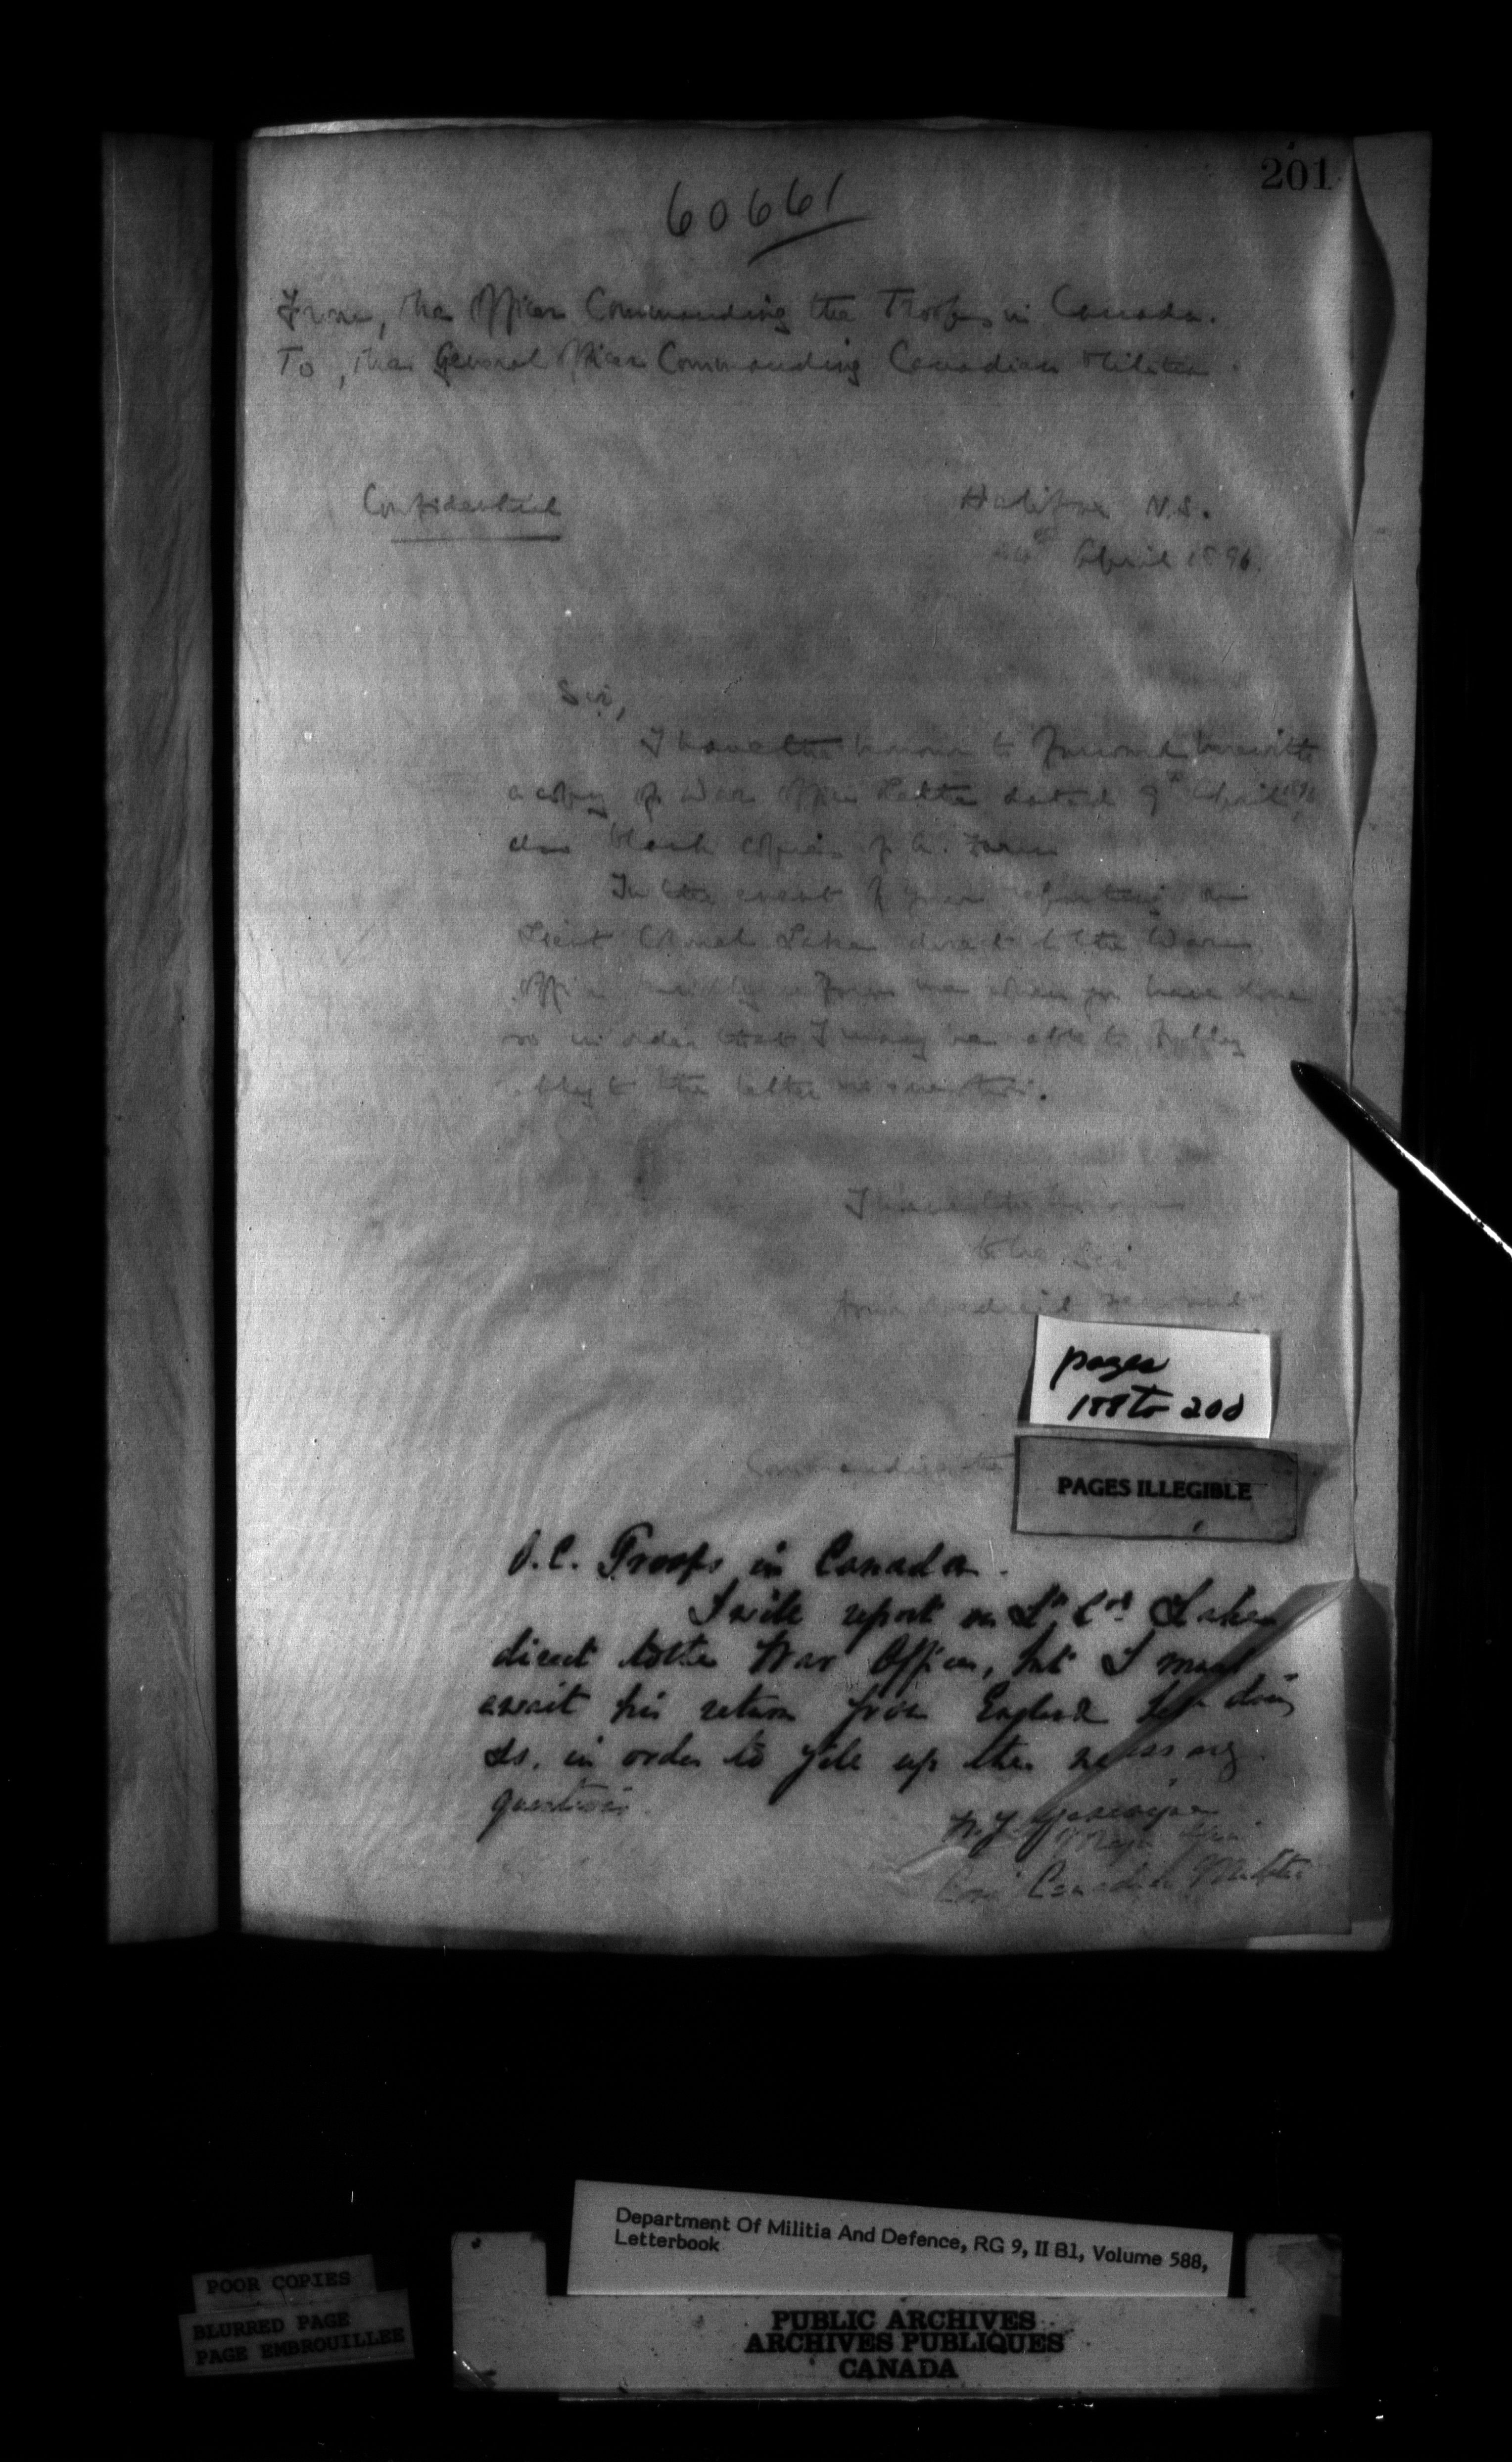 201
60661
From, The Officer Commanding the Troops in Canada.
To, The General Officer Commanding Canadian Militia.
Confidential
Halifax N.S.
April 1896.
Sir,
I have the honour to forward herewith
a copy of War Office Letter dated 9th April
blank copies of
In the event of your reporting on
Lieut Colonel Lake direct to the War
Office kindly inform me when you have done
so in order that I may be able to fully
reply to the letter in question.
I have the honour
to be, Sir
Your obedient servant
pages
188 to 200
Commanding the
PAGES ILLEGIBLE
O.C. Troops in Canada.
I will report on Lt. Col Lake
direct to the War Office, but I must
await his return from England before doing
so, in order to fill up the necessary
questions.
W. J. Gascoigne
Major Genl
Canadian Militia
Department Of Militia And Defence, RG 9, II B1, Volume 588,
Letterbook
POOR COPIES
BLURRED PAGE
PAGE EMBROUILLEE
PUBLIC ARCHIVES
ARCHIVES PUBLIQUES
CANADA